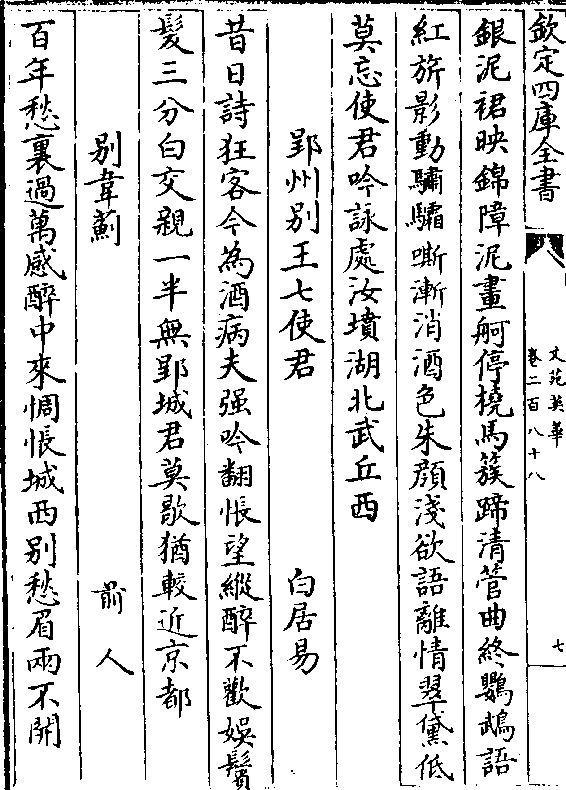 欽定四庫全書
文苑英華
卷二百八十八
七
銀泥裙映錦障泥畫舸停橈馬簇蹄清管曲終鸚鵡語
紅旂影動驌驦嘶漸消酒色朱顔淺欲語離情翠黛低
莫忘使君吟詠處汝墳湖北武丘西
郢州别王七使君
白居易
昔日詩狂客今為酒病夫强吟翻悵望縱醉不歡娛鬢
髮三分白交親一半無郢城君莫歇猶較近京都
别韋薊
前人
百年愁裏過萬感醉中來惆悵城西别愁眉兩不開